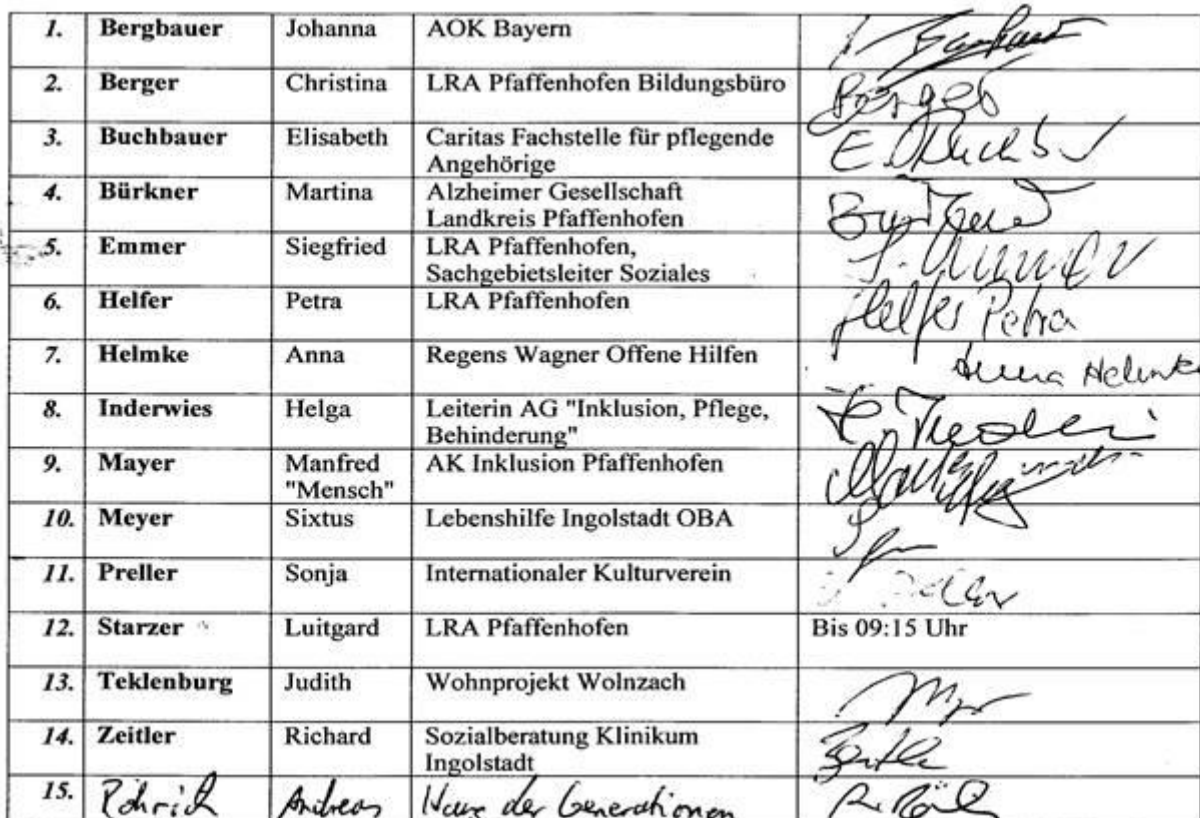 1. Bergbauer Johanna AOK Bayern
2. Berger Christina LRA Pfaffenhofen Bildungsbüro Berger
3. Buchbauer Elisabeth Caritas Fachstelle für pflegende
Angehörige
4. Bürkner Martina Alzheimer Gesellschaft
Landkreis Pfaffenhofen
5. Emmer Siegfried LRA Pfaffenhofen,
Sachgebietsleiter Soziales
6. Helfer Petra LRA Pfaffenhofen Helfer Petra
7. Helmke Anna Regens Wagner Offene Hilfen Anna Helmke
8. Inderwies Helga Leiterin AG "Inklusion, Pflege,
Behinderung"
9. Mayer Manfred AK Inklusion Pfaffenhofen
"Mensch"
10. Meyer Sixtus Lebenshilfe Ingolstadt OBA
11. Preller Sonja Internationaler Kulturverein
12. Starzer Luitgard LRA Pfaffenhofen Bis 09:15 Uhr
13. Teklenburg Judith Wohnprojekt Wolnzach
14. Zeitler Richard Sozialberatung Klinikum
Ingolstadt
15. Röhrich Andreas Haus der Generationen